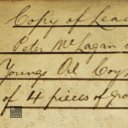 Copy of Leas
Peter McLagan
Youngs Oil Coy
of 4 pieces of gro